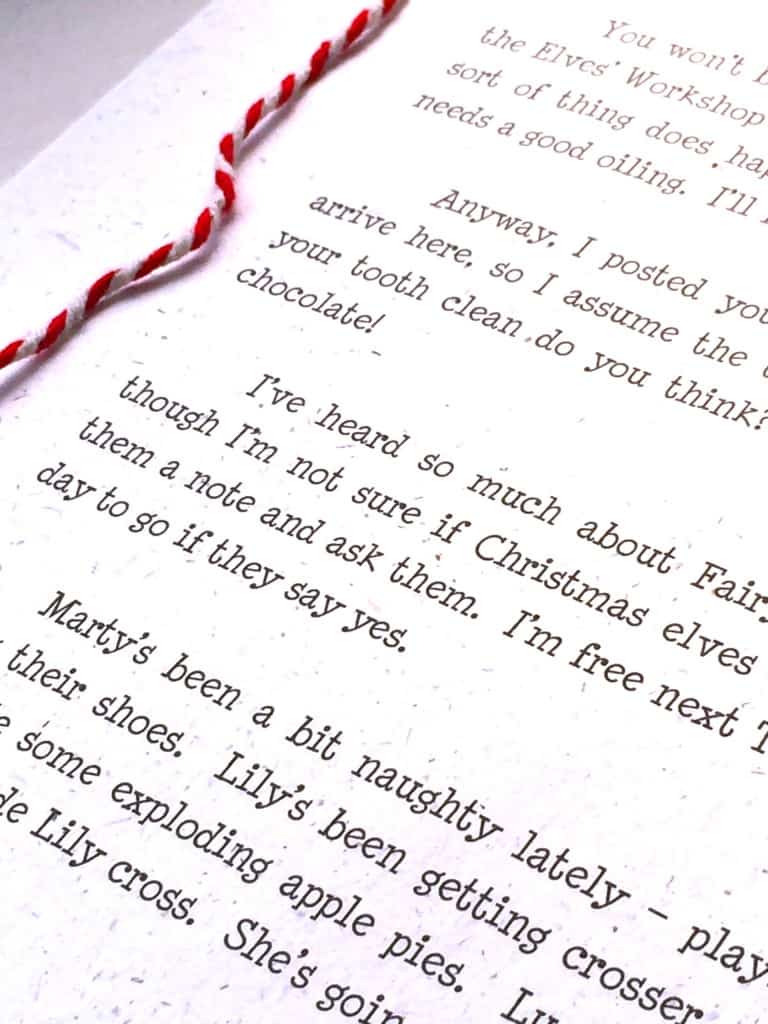 You won't
the Elves' Workshop
sort of thing does, hap
needs a good oiling. I'll
Anyway, I posted you
arrive here, so I assume the
your tooth clean do you think?
chocolate!
I've heard so much about Fair
though I'm not sure if Christmas elves
them a note and ask them. I'm free next T
day to go if they say yes.
Marty's been a bit naughty lately – play
their shoes. Lily's been getting crosser
some exploding apple pies. Lu
de Lily cross. She's goin